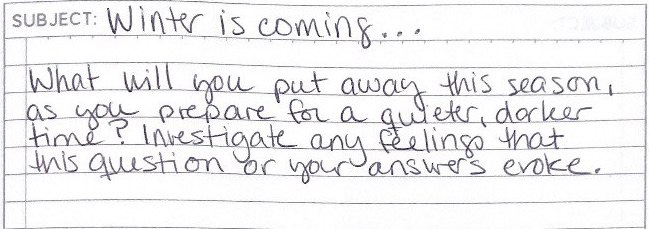 SUBJECT: Winter is coming...
What will you put away this season,
as you prepare for a quieter, darker
time? Investigate any feelings that
this question or your answers evoke.